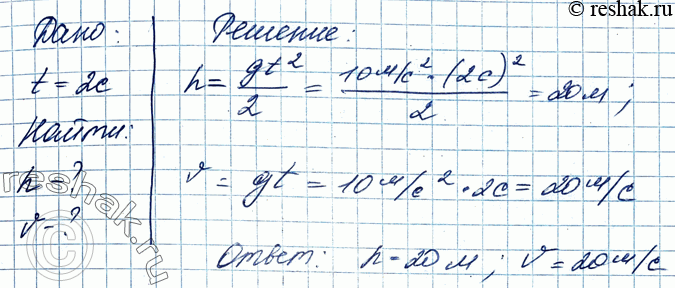 © reshak.ru
Дано:
t = 2с
Найти:
h = ?
v - ?
Решение:
h = gt²/2 = 10м/с² · (2с)²/2 = 20м;
v = gt = 10м/с² · 2с = 20м/с
Ответ: h - 20м; v = 20м/с
reshak.ru